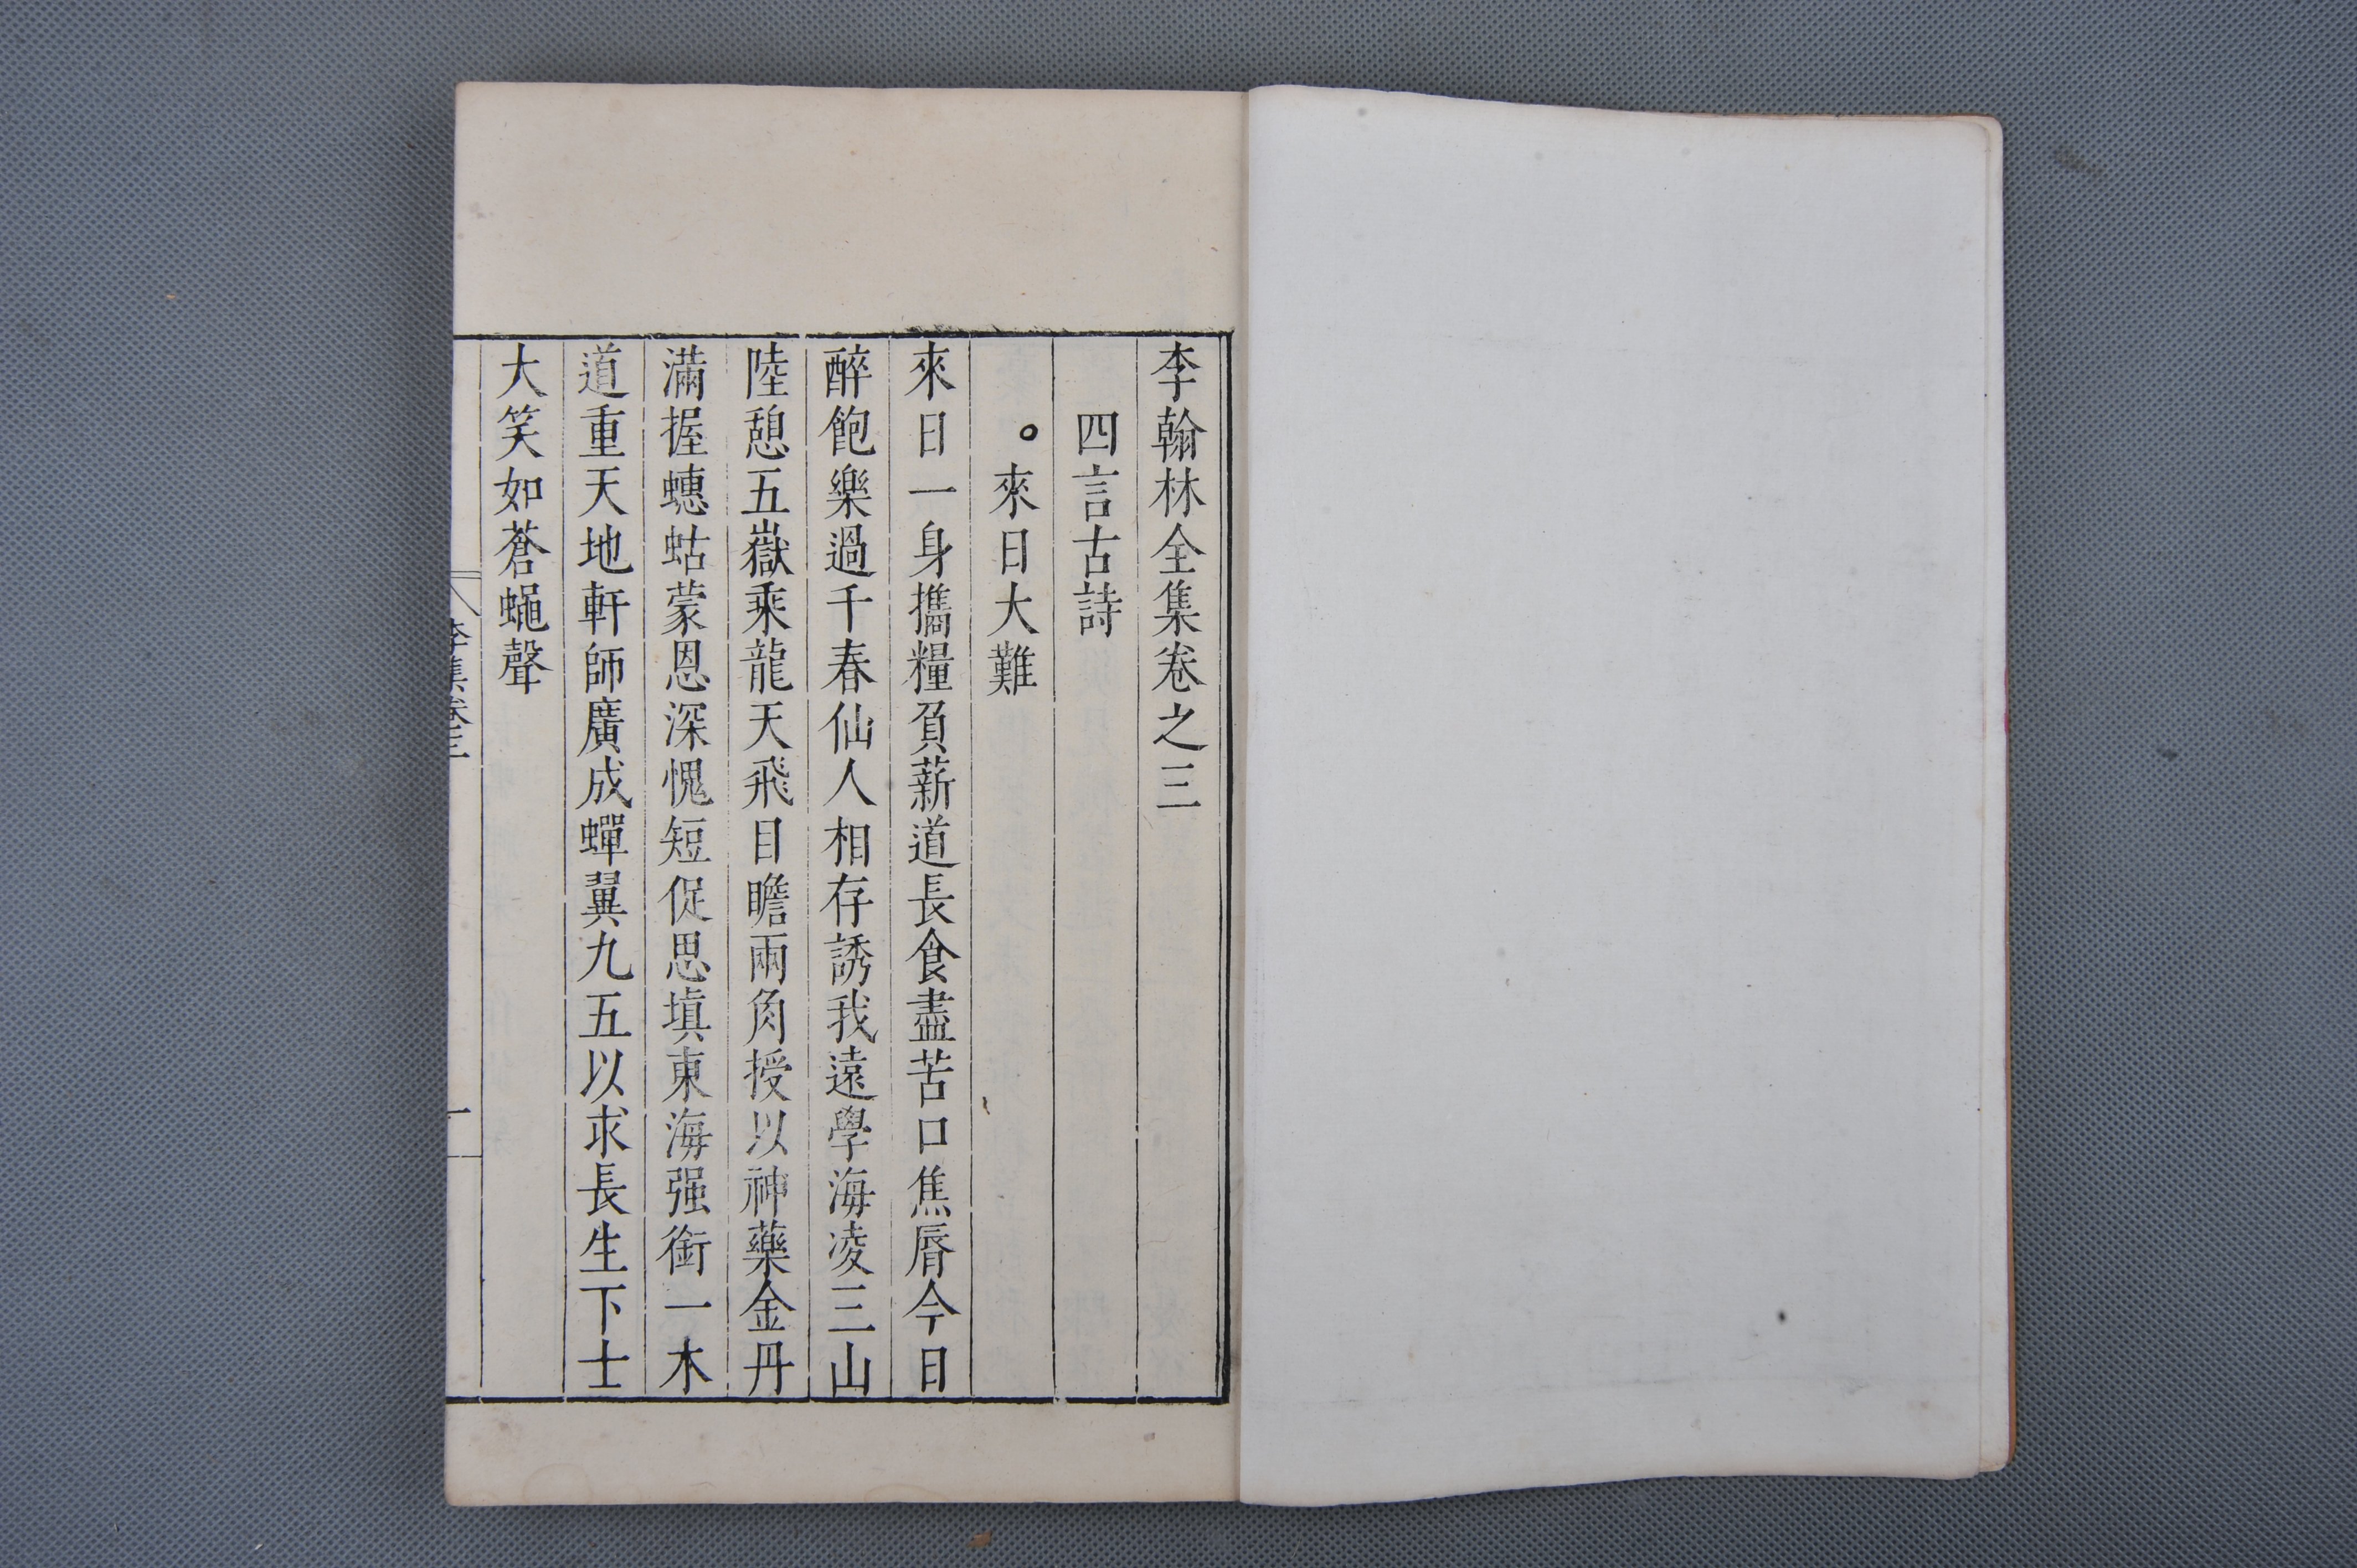 李翰林全集卷之三
四言古詩
。來日大難
來日一身攜糧負薪道長食盡苦口焦脣今日
醉飽樂過千春仙人相存誘我遠學海凌三山
陸憩五嶽乘龍天飛目瞻兩角授以神藥金丹
滿握蟪蛄蒙恩深愧短促思塡東海强銜一木
道重天地軒師廣成蟬翼九五以求長生下士
大笑如蒼蠅聲
李集卷三
一